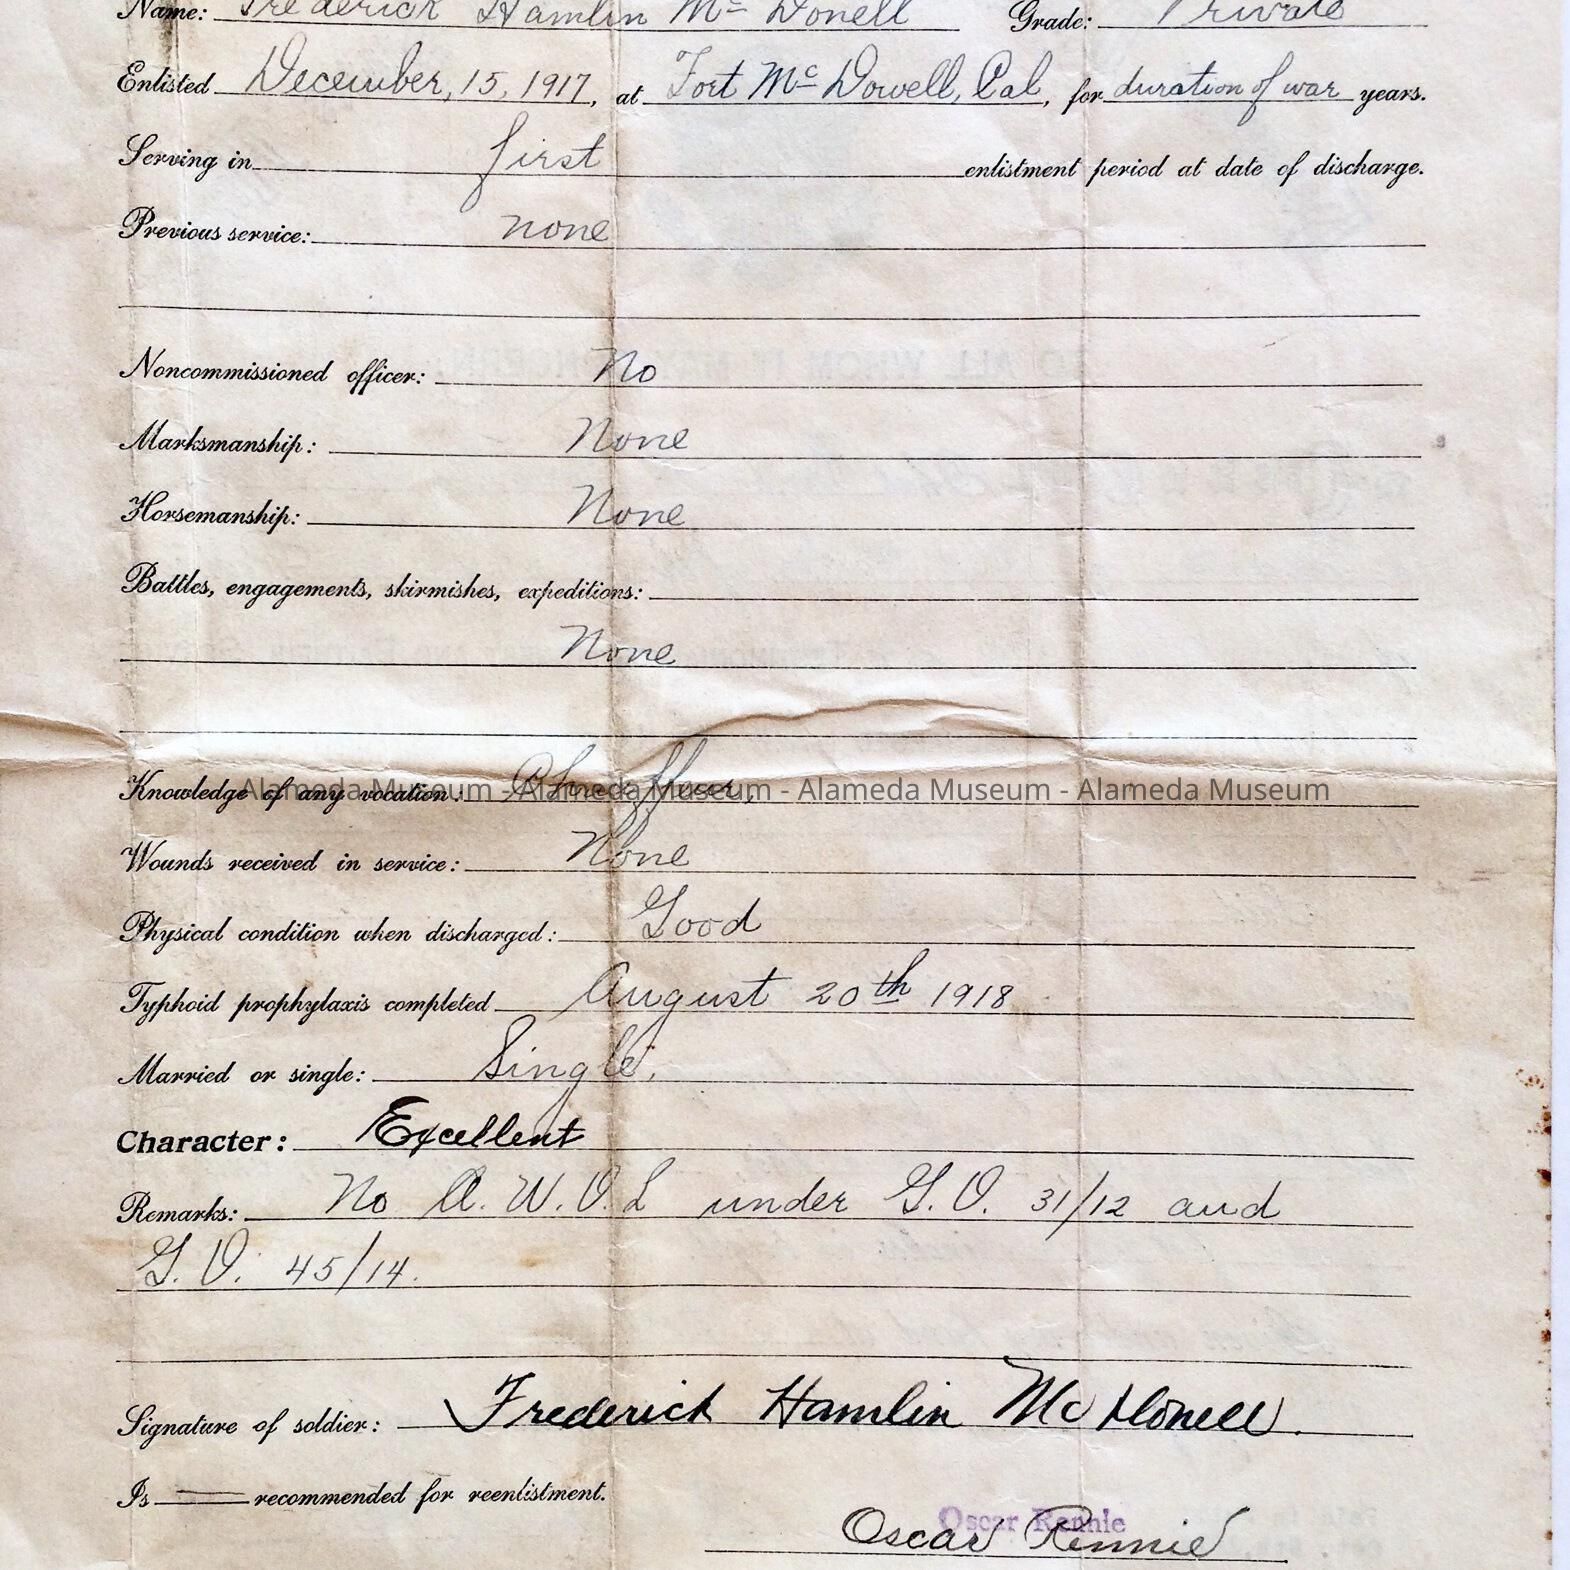 Name: Frederick Hamlin Mc Donell Grade: Private
Enlisted December, 15, 1917, at Fort Mc Dowell, Cal, for duration of war years.
Serving in first enlistment period at date of discharge.
Previous service: none
Noncommissioned officer: No
Marksmanship: None
Horsemanship: None
Battles, engagements, skirmishes, expeditions:
None
Knowledge of any vocation: Chauffeur,
Alameda Museum - Alameda Museum - Alameda Museum - Alameda Museum
Wounds received in service: None
Physical condition when discharged: Good
Typhoid prophylaxis completed August 20th 1918
Married or single: Single,
Character: Excellent
Remarks: No A. W. O. L under G. O. 31/12 and
G. O. 45/14.
Signature of soldier: Frederick Hamlin Mc Donell.
Is recommended for reenlistment.
Oscar Rennie
Oscar Rennie